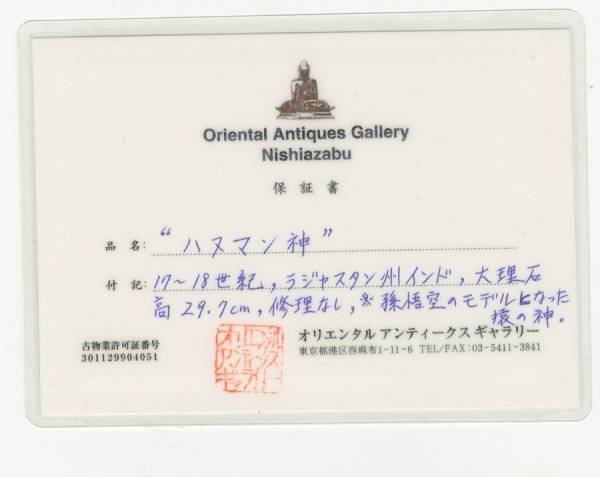 Oriental Antiques Gallery
Nishiazabu
保証書
品名: “ハヌマン神”
付記: 17〜18世紀, ラジャスタン州インド, 大理石
高29.7cm, 修理なし, ※孫悟空のモデルとなった
猿の神。
古物業許可証番号
301129904051
オリエンタル アンティークス ギャラリー
東京都港区西麻布1-11-6 TEL/FAX:03-5411-3841